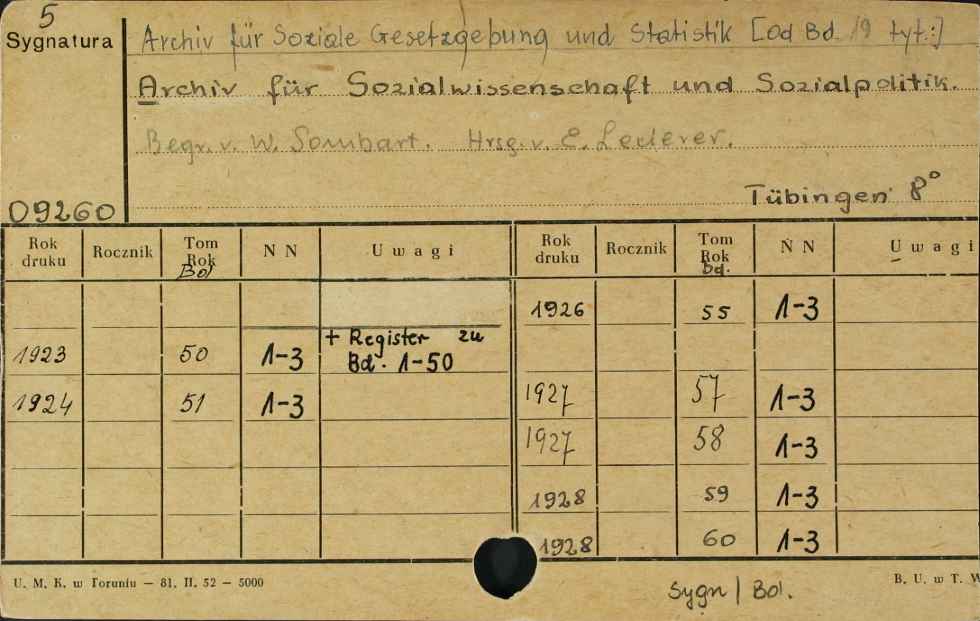 5
Sygnatura
Archiv für Soziale Gesetzgebung und Statistik [Od Bd. 19 tyt.:]
Archiv für Sozialwissenschaft und Sozialpolitik.
Begr. v. W. Sombart. Hrsg. v. E. Lederer.
Tübingen 8°
09260
Rok druku Rocznik Tom Rok Bd N N Uwagi Rok druku Rocznik Tom Rok Bd. N N Uwagi
1926 55 1-3
1923 50 1-3 + Register zu Bd. 1-50
1924 51 1-3 1927 57 1-3
1927 58 1-3
1928 59 1-3
1928 60 1-3
U. M. K. w Toruniu — 81. II. 52 — 5000
Sygn | Bd.
B. U. w T. W